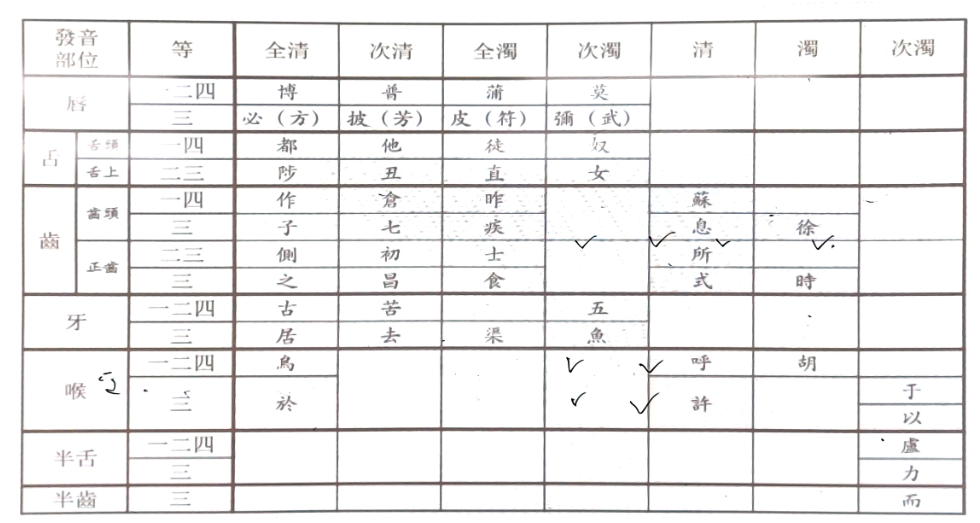 發音部位 等 全清 次清 全濁 次濁 清 濁 次濁
唇 一二四 博 普 蒲 莫
三 必（方） 披（芳） 皮（符） 彌（武）
舌 舌頭 一四 都 他 徒 奴
舌上 二三 陟 丑 直 女
齒 齒頭 一四 作 倉 昨 蘇
三 子 七 疾 息 徐
正齒 二三 側 初 士 所
三 之 昌 食 式 時
牙 一二四 古 苦 五
三 居 去 渠 魚
喉 一二四 烏 呼 胡
三 於 許 于
以
半舌 一二四 盧
三 力
半齒 三 而